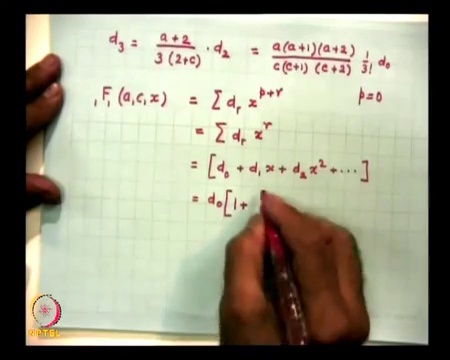 d₃ = (a+2)/(3(2+c)) · d₂ = (a(a+1)(a+2))/(c(c+1)(c+2)) 1/3! d₀
₁F₁(a,c,x) = Σ dᵣ x^(p+r) p=0
= Σ dᵣ x^r
= [d₀ + d₁x + d₂x² + ⋯]
= d₀[1+
NPTEL